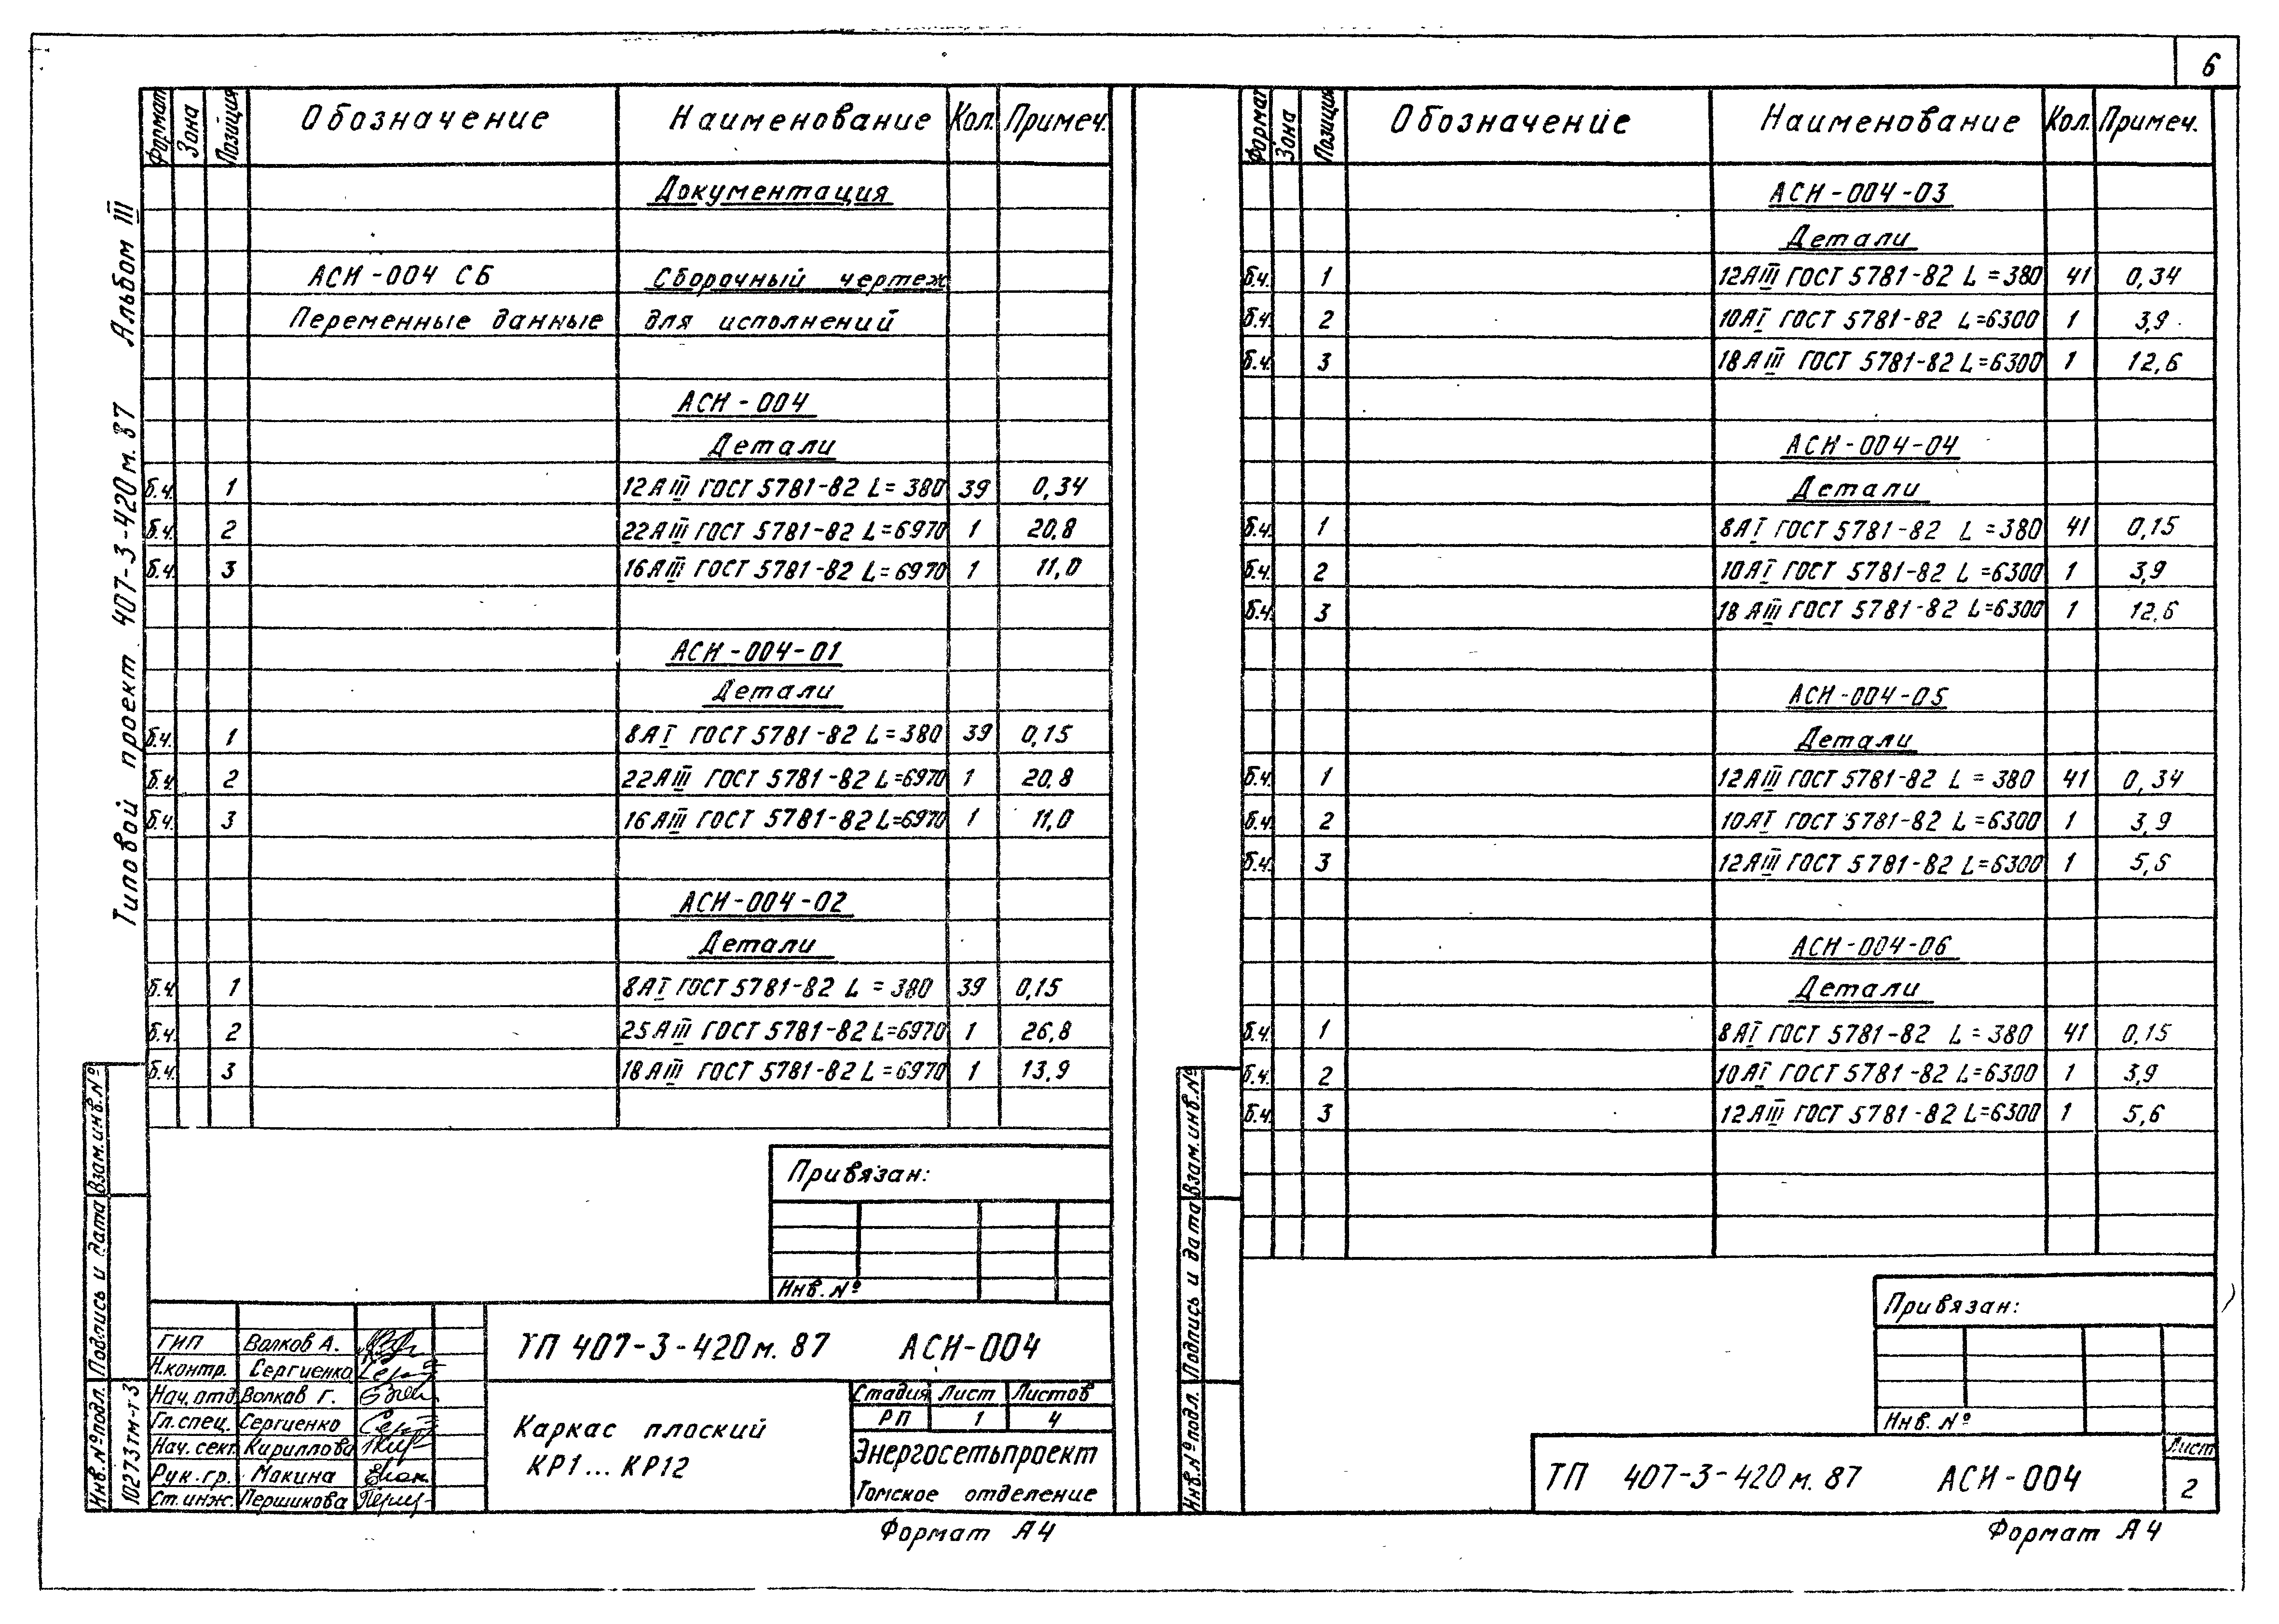 6
Типовой проект 407-3-420м.87 Альбом III
Формат Зона Позиция Обозначение Наименование Кол. Примеч.
Документация
АСИ-004 СБ Сборочный чертеж
Переменные данные для исполнений
АСИ-004
Детали
б.ч. 1 12АIII ГОСТ 5781-82 L=380 39 0,34
б.ч. 2 22АIII ГОСТ 5781-82 L=6970 1 20,8
б.ч. 3 16АIII ГОСТ 5781-82 L=6970 1 11,0
АСИ-004-01
Детали
б.ч. 1 8АI ГОСТ 5781-82 L=380 39 0,15
б.ч. 2 22АIII ГОСТ 5781-82 L=6970 1 20,8
б.ч. 3 16АIII ГОСТ 5781-82 L=6970 1 11,0
АСИ-004-02
Детали
б.ч. 1 8АI ГОСТ 5781-82 L=380 39 0,15
б.ч. 2 25АIII ГОСТ 5781-82 L=6970 1 26,8
б.ч. 3 18АIII ГОСТ 5781-82 L=6970 1 13,9
Привязан:
Инв. №
Взам.инв.№
Подпись и дата
Инв.№подл.
10273тм-т-3
ГИП Волков А.
Н.контр. Сергиенко
Нач.отд. Волков Г.
Гл.спец. Сергиенко
Нач.сект. Кириллова
Рук.гр. Макина
Ст.инж. Першикова
ТП 407-3-420м.87 АСИ-004
Каркас плоский
КР1...КР12
Стадия Лист Листов
РП 1 4
Энергосетьпроект
Томское отделение
Формат А4
Формат Зона Позиция Обозначение Наименование Кол. Примеч.
АСИ-004-03
Детали
б.ч. 1 12АIII ГОСТ 5781-82 L=380 41 0,34
б.ч. 2 10АI ГОСТ 5781-82 L=6300 1 3,9
б.ч. 3 18АIII ГОСТ 5781-82 L=6300 1 12,6
АСИ-004-04
Детали
б.ч. 1 8АI ГОСТ 5781-82 L=380 41 0,15
б.ч. 2 10АI ГОСТ 5781-82 L=6300 1 3,9
б.ч. 3 18АIII ГОСТ 5781-82 L=6300 1 12,6
АСИ-004-05
Детали
б.ч. 1 12АIII ГОСТ 5781-82 L=380 41 0,34
б.ч. 2 10АI ГОСТ 5781-82 L=6300 1 3,9
б.ч. 3 12АIII ГОСТ 5781-82 L=6300 1 5,6
АСИ-004-06
Детали
б.ч. 1 8АI ГОСТ 5781-82 L=380 41 0,15
б.ч. 2 10АI ГОСТ 5781-82 L=6300 1 3,9
б.ч. 3 12АIII ГОСТ 5781-82 L=6300 1 5,6
Привязан:
Инв. №
Взам.инв.№
Подпись и дата
Инв.№подл.
ТП 407-3-420м.87 АСИ-004
Лист
2
Формат А4